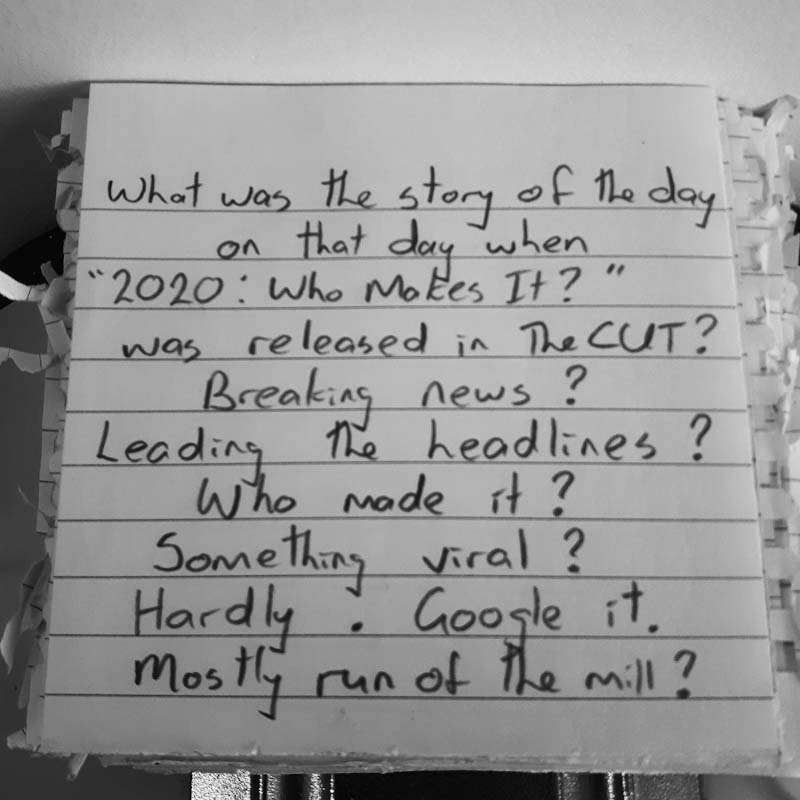 What was the story of the day
on that day when
"2020: Who Makes It?"
was released in The CUT?
Breaking news?
Leading the headlines?
Who made it?
Something viral?
Hardly. Google it.
Mostly run of the mill?